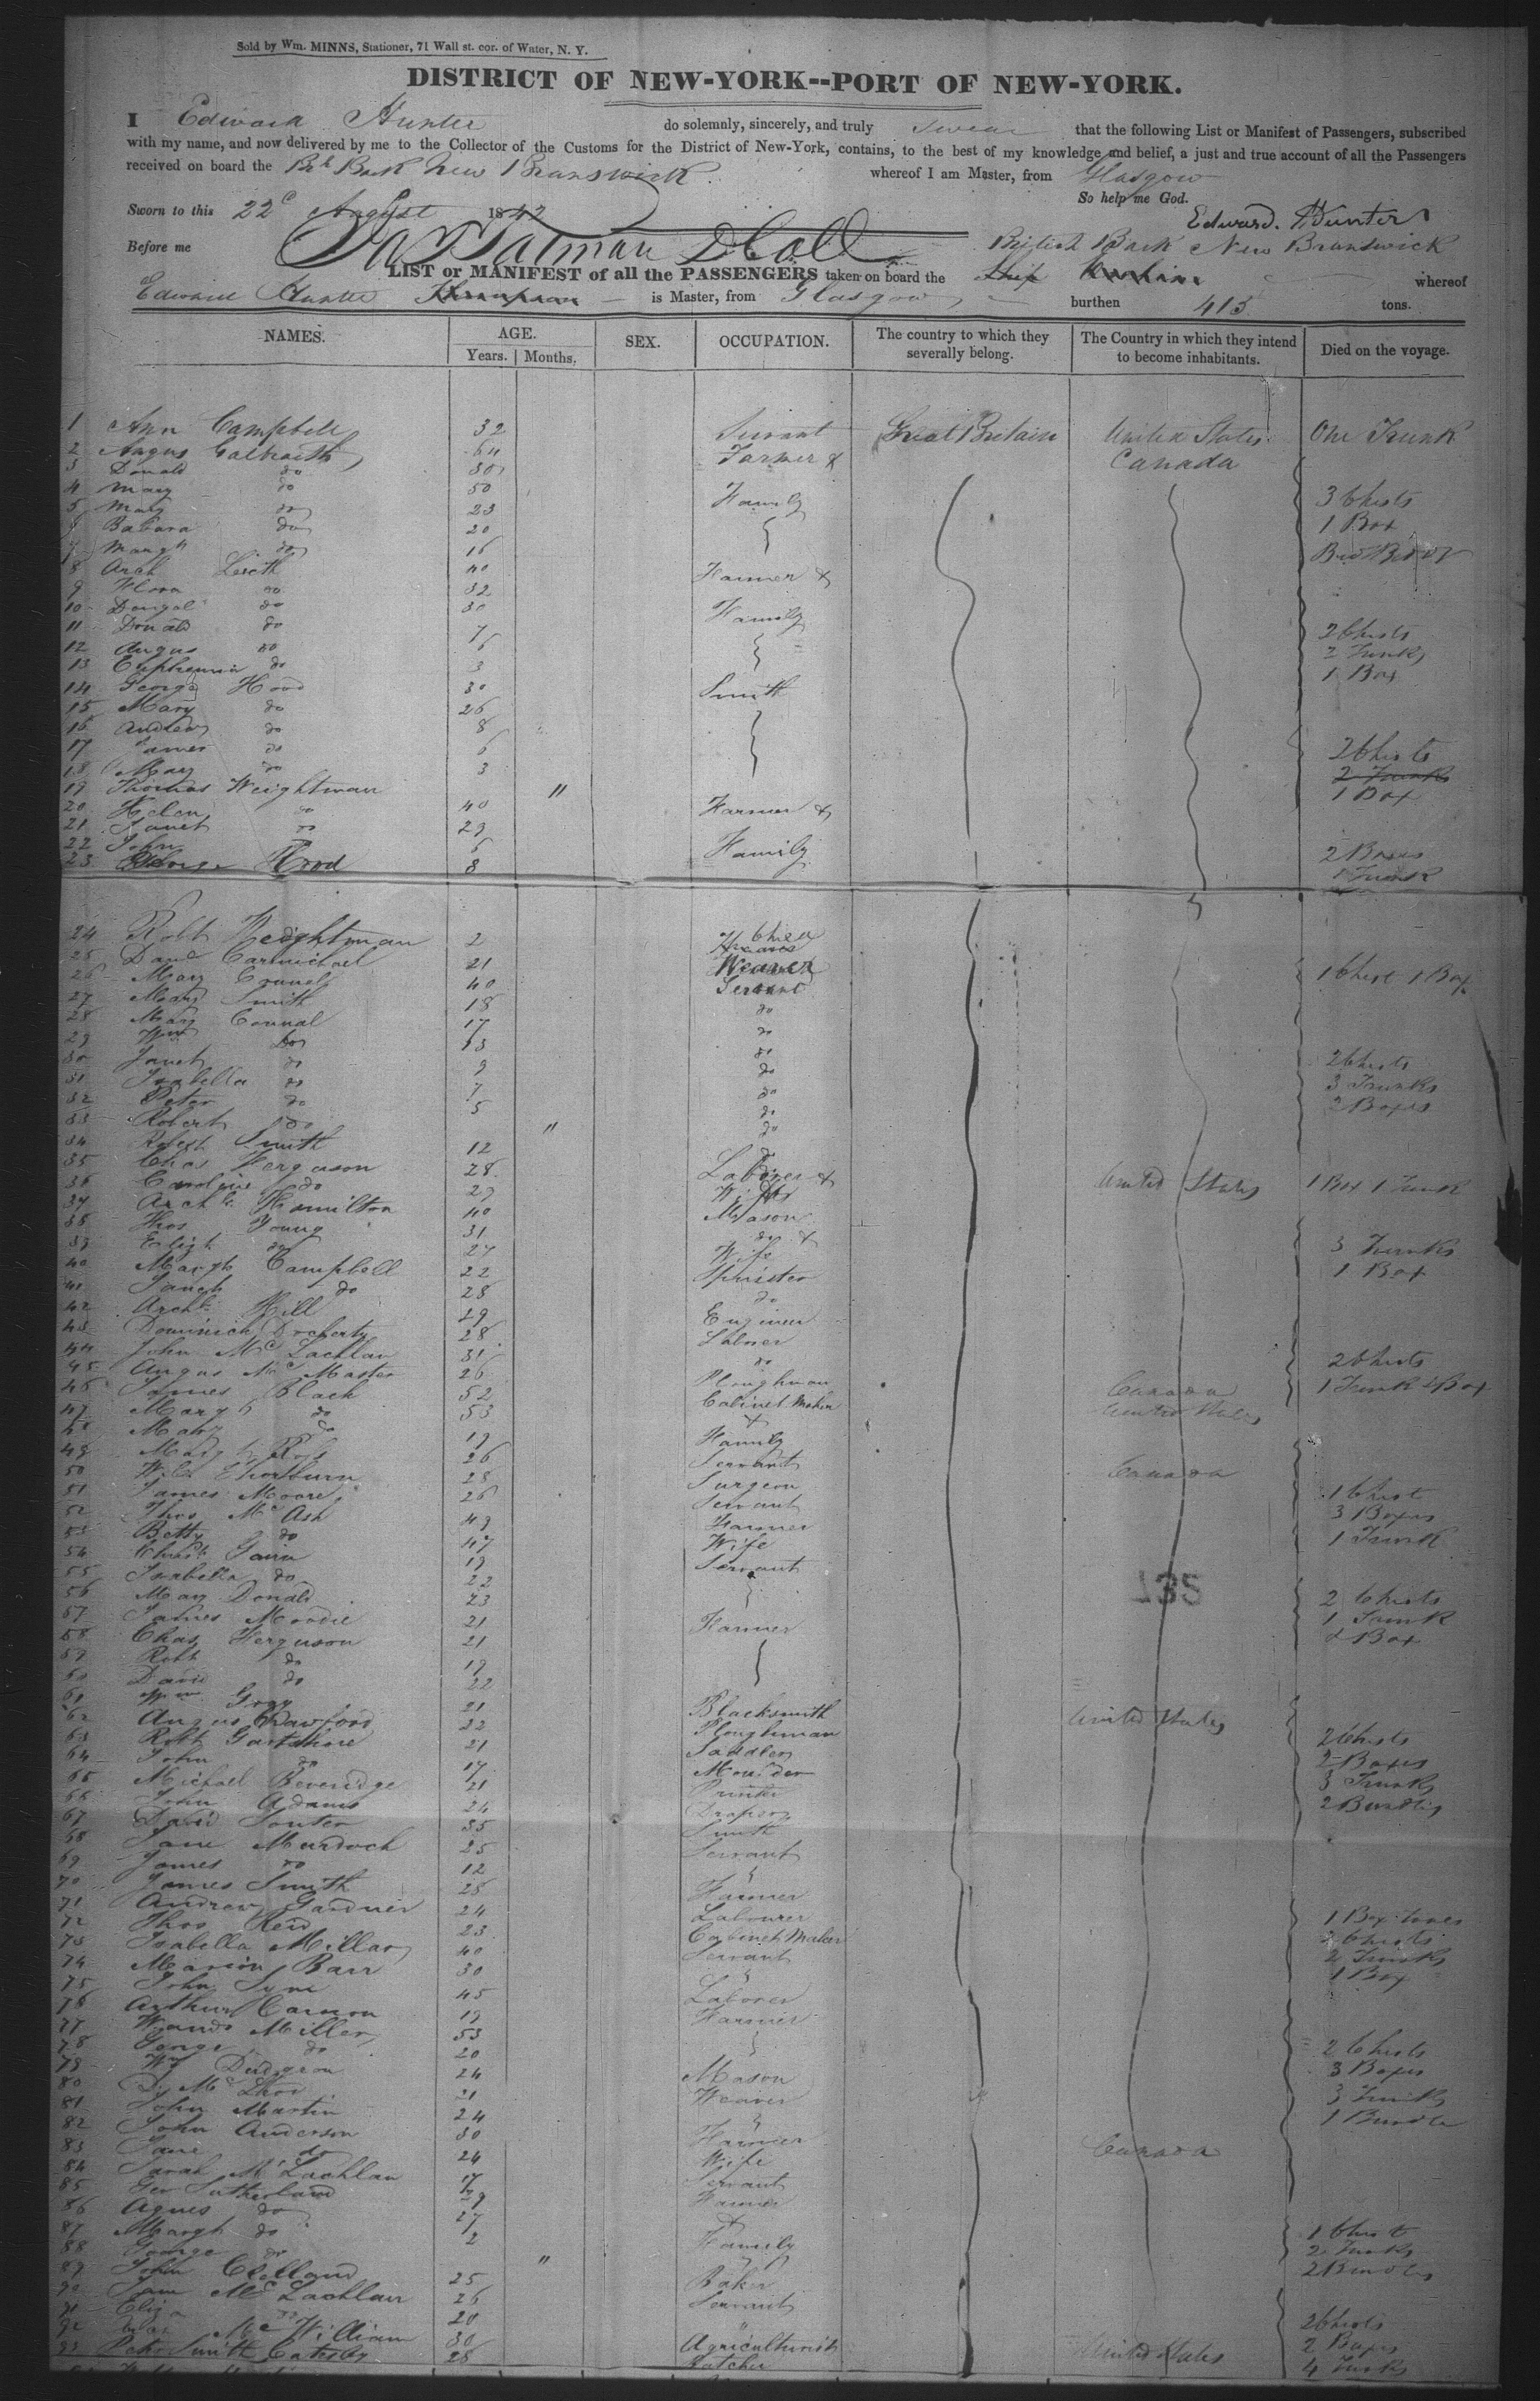 Sold by Wm. MINNS, Stationer, 71 Wall st. cor. of Water, N. Y.
DISTRICT OF NEW-YORK--PORT OF NEW-YORK.
I Edward Hunter do solemnly, sincerely, and truly swear that the following List or Manifest of Passengers, subscribed
with my name, and now delivered by me to the Collector of the Customs for the District of New-York, contains, to the best of my knowledge and belief, a just and true account of all the Passengers
received on board the Bark New Brunswick whereof I am Master, from Glasgow
So help me God.
Sworn to this 22 August 1842 Edward. Hunter
Before me British Bark New Brunswick
LIST or MANIFEST of all the PASSENGERS taken on board the Ship whereof
Edward Hunter is Master, from Glasgow burthen 413 tons.
NAMES. AGE. Years. Months. SEX. OCCUPATION. The country to which they severally belong. The Country in which they intend to become inhabitants. Died on the voyage.
1 Ann Campbell 32 Servant Great Britain United States One Trunk
2 Angus Galbraith 64 Farmer & Canada
3 Donald do 30
4 Mary do 50 Family 3 Chests
5 Mary do 23 1 Box
6 Babara do 20
7 Margt do 16
8 Arch Leith 40 Farmer &
9 Flora do 32
10 Dougal do 30 Family
11 Donald do 7 2 Chests
12 Angus do 5 2 Trunks
13 Euphemia do 3 1 Box
14 George Hood 30 Smith
15 Mary do 26
16 Andrew do 8
17 James do 6 2 Chests
18 Mary do 3 2 Trunks
19 Thomas Weightman " 1 Box
20 Helen do 40 Farmer &
21 Janet do 29
22 John 6 Family 2 Boxes
23 George Hood 8 1 Trunk
24 Robt Weightman 2
25 David Carmichael 21 Weaver
26 Mary 40 Servant 1 Chest 1 Box
27 Mary Smith 18 do
28 Mary Connal 17 do
29 Wm do 13 do
30 Janet do 9 do 2 Chests
31 Isabella do 7 do 3 Trunks
32 Peter do 5 do 2 Boxes
33 Robert do " do
34 Robert Smith 12
35 Chas Ferguson 28 Laborer & United States 1 Box 1 Trunk
36 Caroline do 29 Wife
37 Archd. Hamilton 40 Mason
38 Thos Young 31 do &
39 Elizh do 27 Wife 3 Trunks
40 Margt Campbell 22 Spinster 1 Box
41 do 28 do
42 Archd. Hill 29 Engineer
43 Dominick Docherty 28 Labrer
44 John McLachlan 31 do 2 Chests
45 Angus McMaster 26 Ploughman 1 Trunk & Box
46 James Black 52 Cabinet Maker Canada
47 Margt do 53 & United States
48 Mary do 19 Family
49 Margt Ross 26 Servant
50 Wm Thorburn 28 Surgeon Canada
51 James Moore 26 Servant 1 Chest
52 Thos McAsh 49 Farmer 3 Boxes
53 Betty do 47 Wife 1 Trunk
54 19 Servant
55 Isabella do 22
56 Mary Donald 23 2 Chests
57 James Moodie 21 Farmer 1 Trunk
58 Chas Ferguson 21 & Box
59 Robt do 19
60 David do 22
61 Wm Gray 21 Blacksmith
62 Angus Crawford 22 Ploughman United States
63 Robt Gartshore 21 Saddler 2 Chests
64 John do 17 Moulder 2 Boxes
65 Michael Beveridge 21 Printer 3 Trunks
66 John Adams 24 Draper 2 Bundles
67 David Souter 35 Smith
68 Jane Murdoch 25 Servant
69 James do 12
70 James Smith 25 Farmer
71 Andrew Gardner 24 Labourer
72 Thos Reid 23 Cabinet Maker 1 Box
73 Isabella Millar 40 Servant 2 Chests
74 Marion Barr 30 2 Trunks
75 John Syme 45 Laborer 1 Box
76 Arthur 19 Farmer
77 Miller 53
78 do 20 2 Chests
79 Wm Dudgeon 24 Mason 3 Boxes
80 21 Weaver 3 Trunks
81 John Martin 24 1 Bundle
82 John Anderson 30 Farmer
83 Jane do 24 Wife Canada
84 Sarah McLachlan 17 Servant
85 Geo Sutherland 29 Farmer
86 Agnes do 27 &
87 Margt do 2 Family 1 Chest
88 George do " 2 Trunks
89 John Clelland 25 Baker 2 Bundles
90 McLachlan 26 Servant
91 Eliza 20 2 Chests
92 McWilliam 30 Agriculturist 2 Boxes
93 Peter Smith 28 United States 4 Trunks